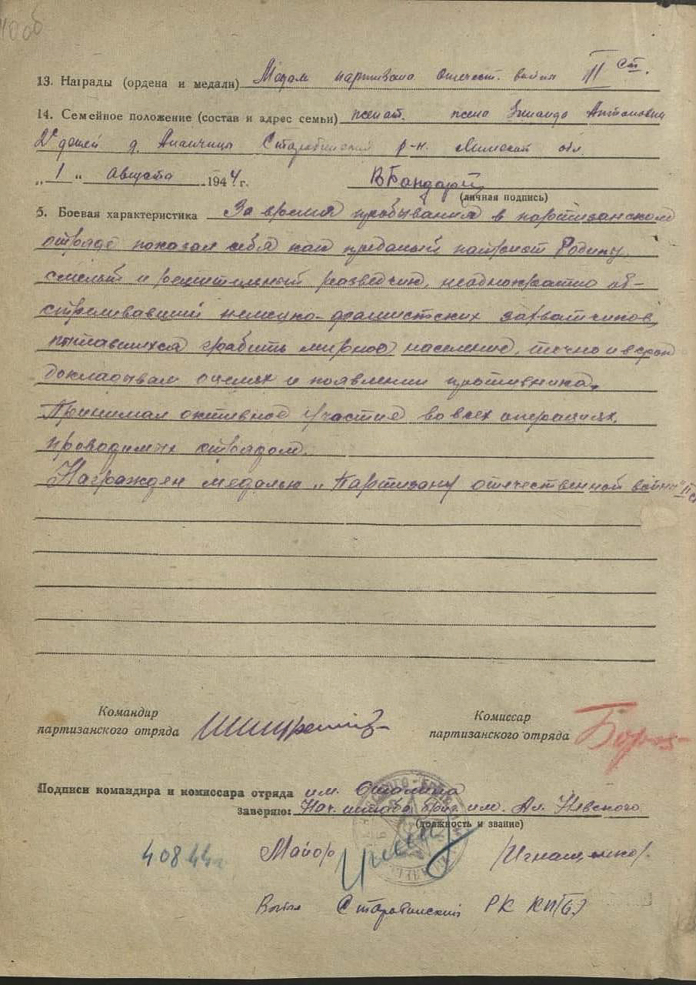 13. Награды (ордена и медали) Медаль партизана отечест. войны II ст.
14. Семейное положение (состав и адрес семьи) женат. жена Антоновна
2е детей д. Старобинский р-н. Минской обл
„1" Августа 1944 г.
(личная подпись)
5. Боевая характеристика За время пребывания в партизанском
отряде показал себя как преданый патриот Родины,
смелый и решительный разведчик, неоднократно об-
стреливавший немецко-фашистских захватчиков,
пытавшихся грабить мирное население, точно и
докладывал о и появлении противника.
Принимал активное участие во всех операциях,
проводимых отрядом.
Награжден медалью „Партизану отечественной войны" II ст
Командир
партизанского отряда
Комиссар
партизанского отряда
Подписи командира и комиссара отряда им. Сталина
заверяю: Нач. штаба бриг. им. Ал. Невского
(должность и звание)
Майор /Игнащенко/.
Старобинский РК КП(б)